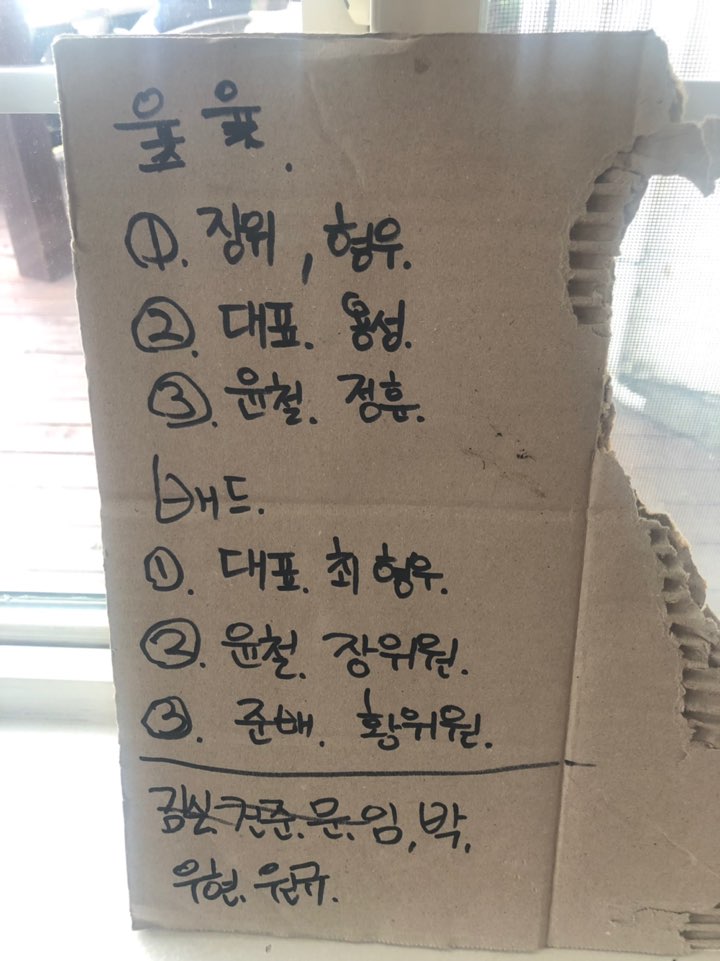 윷.
①. 장위, 형우.
②. 대표. 용성.
③. 윤철. 정훈.
배드.
①. 대표. 최형우.
②. 윤철. 장위원.
③. 준배. 황위원.
문. 임, 박,
우현. 원규.